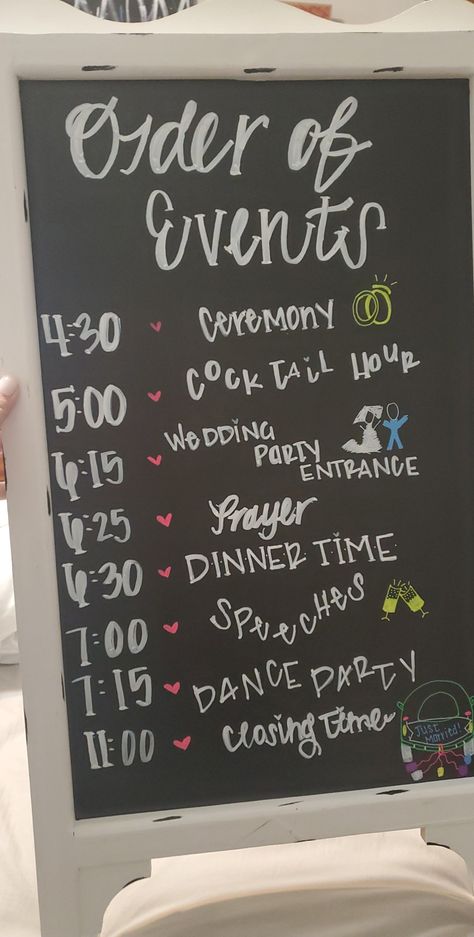 Order of
Events
4:30 ♥ Ceremony
5:00 ♥ COCKTAIL HOUR
6:15 ♥ WEDDING
PARTY
ENTRANCE
6:25 ♥ Prayer
6:30 ♥ DINNER TIME
7:00 ♥ SPEECHES
7:15 ♥ DANCE PARTY
11:00 ♥ Closing Time
JUST
MARRIED!